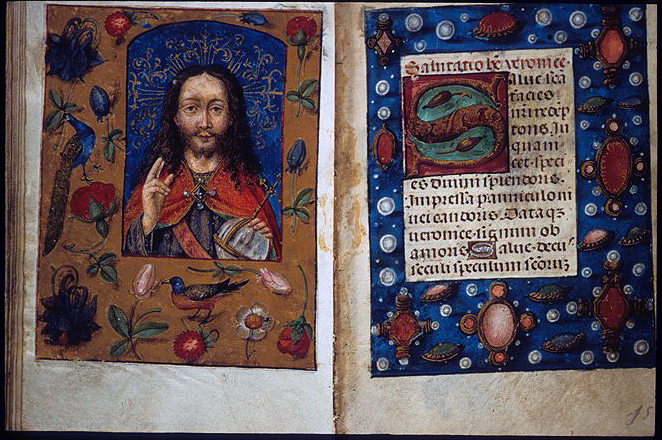 Salutatio be veronice.
Salue scā
facies
nr̄i redep
toris. In
qua ni
tet speci
es diuini splendoris.
Impressa panniculo ni
uei candoris. Dataqz
ueronice signum ob
amoris. Salue decus
seculi speculum scōrz
15